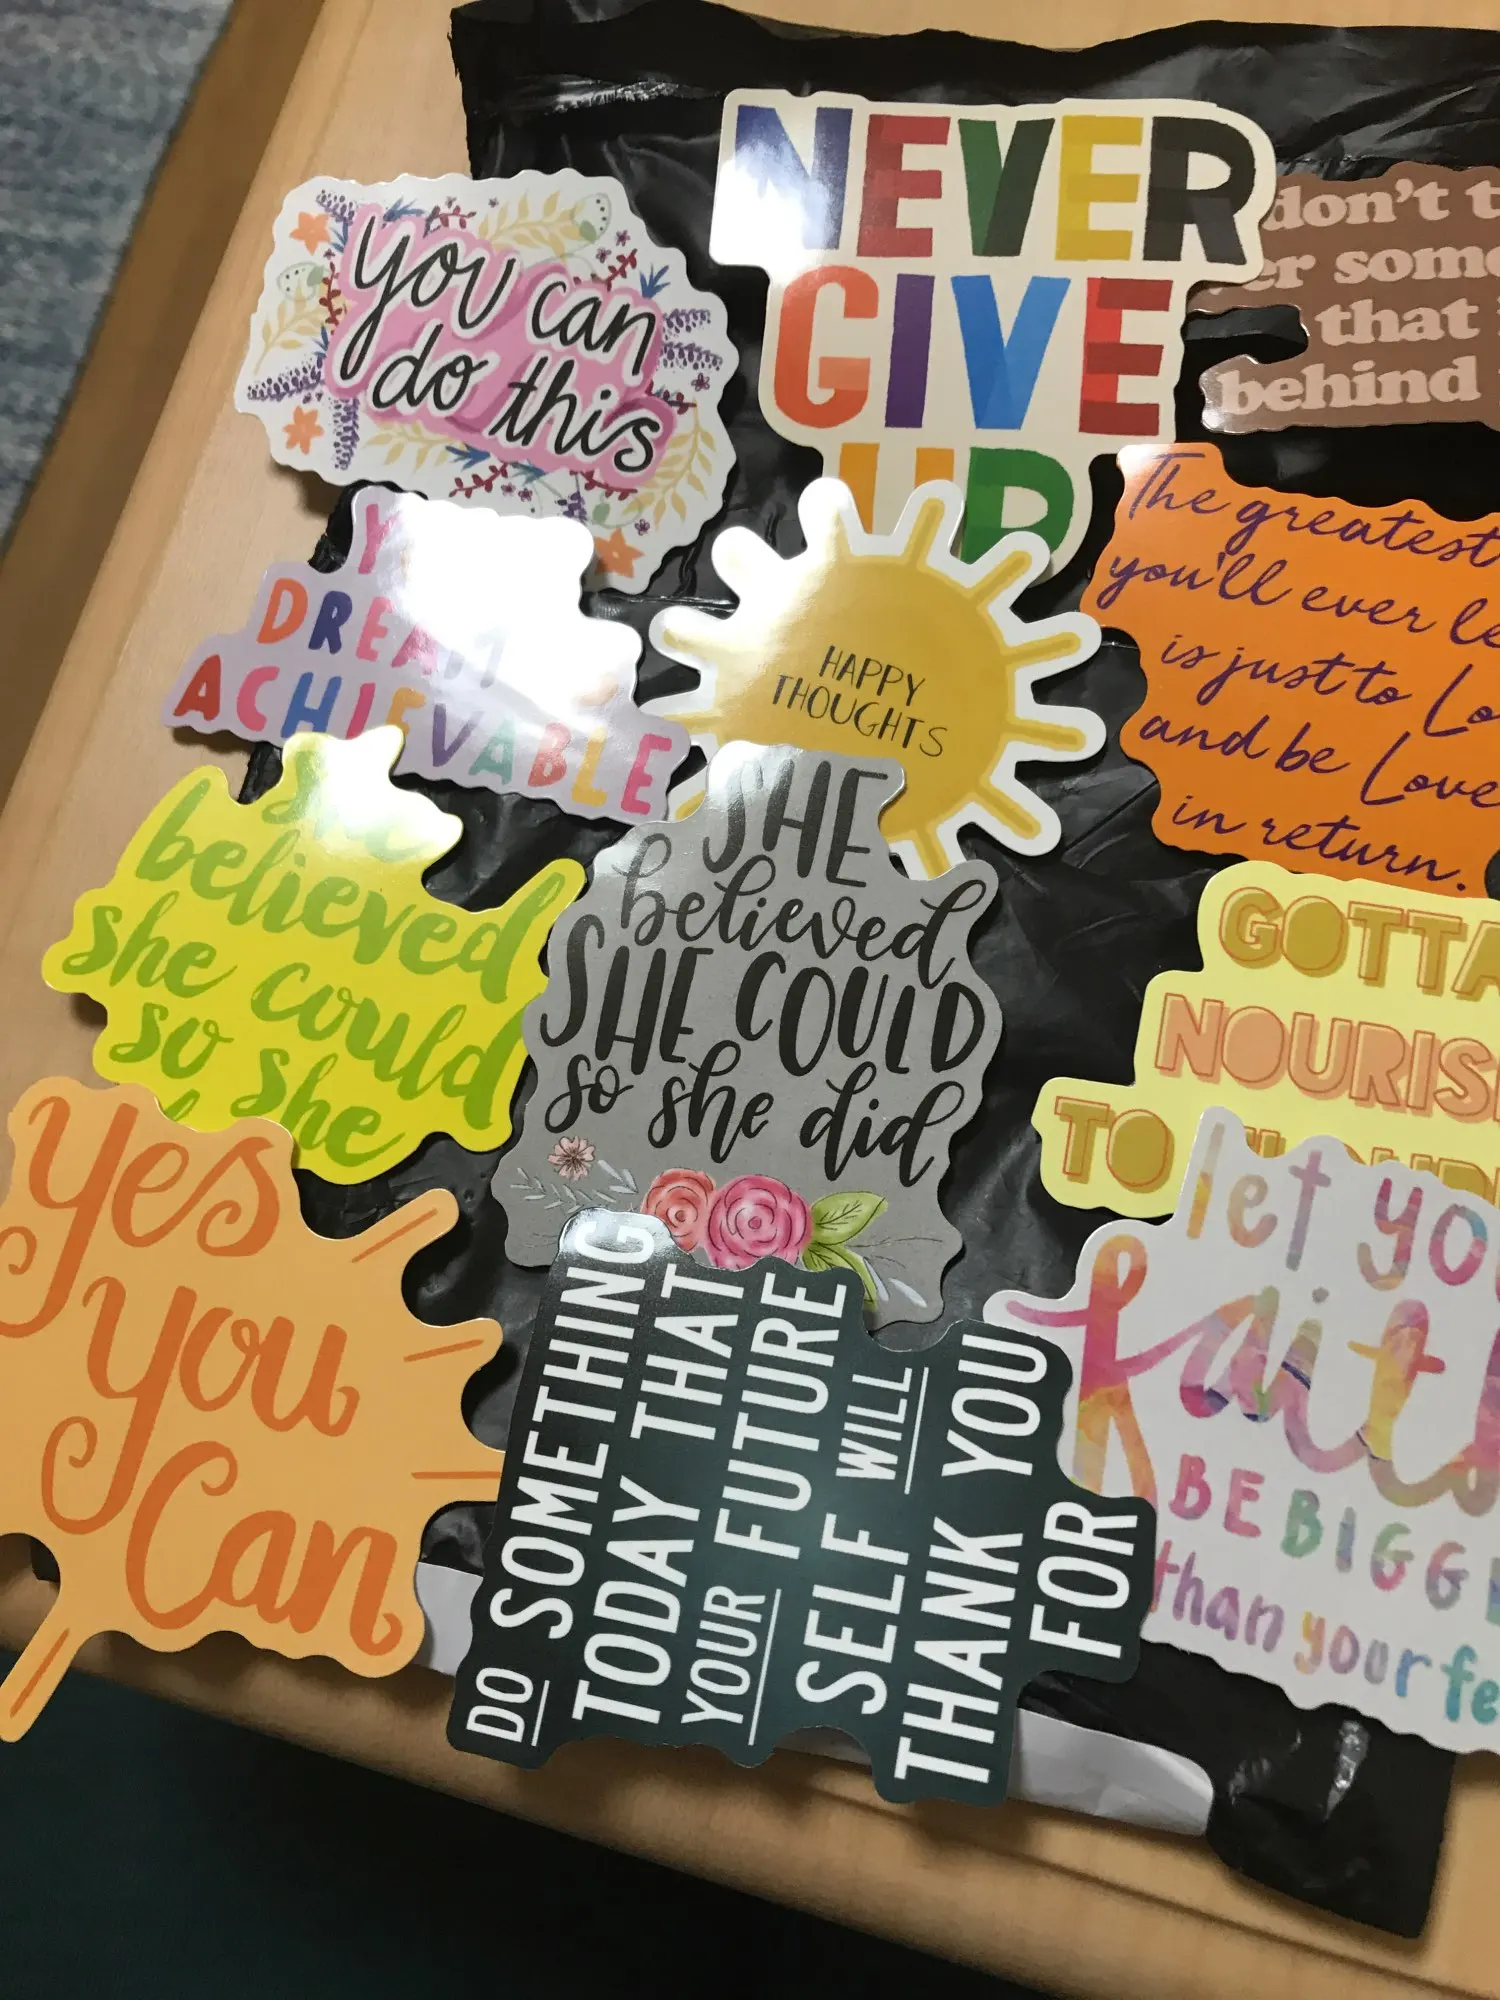 you can
do this
NEVER
GIVE
UP
don't t
er some
that
behind
DREAM
ACHIEVABLE
HAPPY
THOUGHTS
The greatest
you'll ever le
is just to Lo
and be Love
in return.
she
believed
she could
so she
SHE
believed
SHE COULD
so she did
GOTTA
NOURIS
TO
yes
you
Can
DO SOMETHING
TODAY THAT
YOUR FUTURE
SELF WILL
THANK YOU
FOR
let yo
fait
BE BIGGE
than your fe